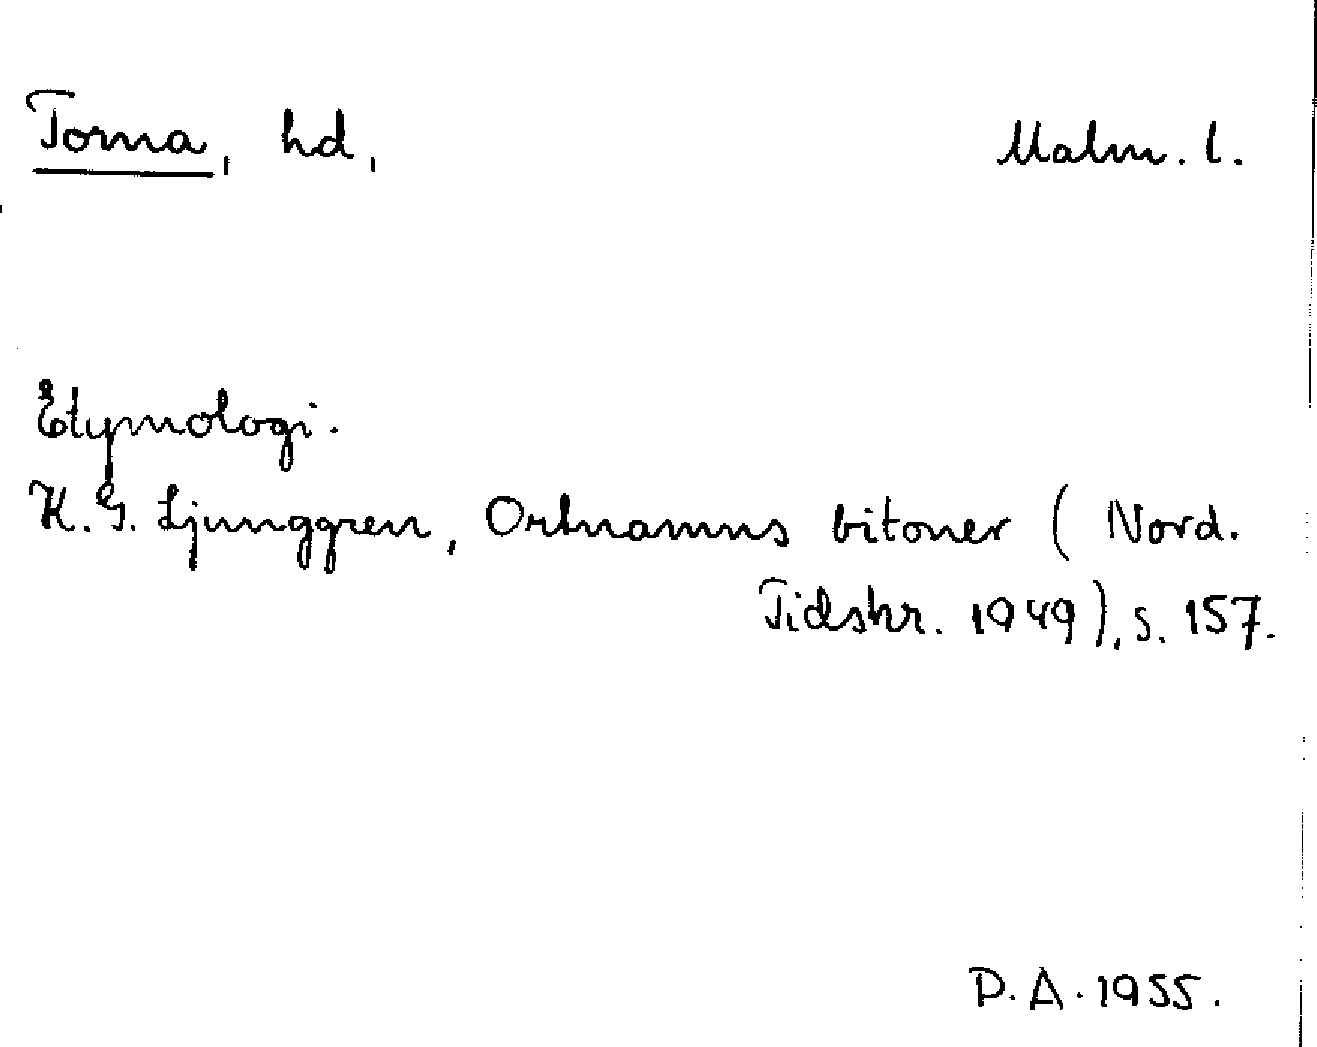 Torna, hd,
Malm. l.
Etymologi.
K. G. Ljunggren, Ortnamns bitoner ( Nord.
Tidskr. 1949), s. 157.
D. A. 1955.